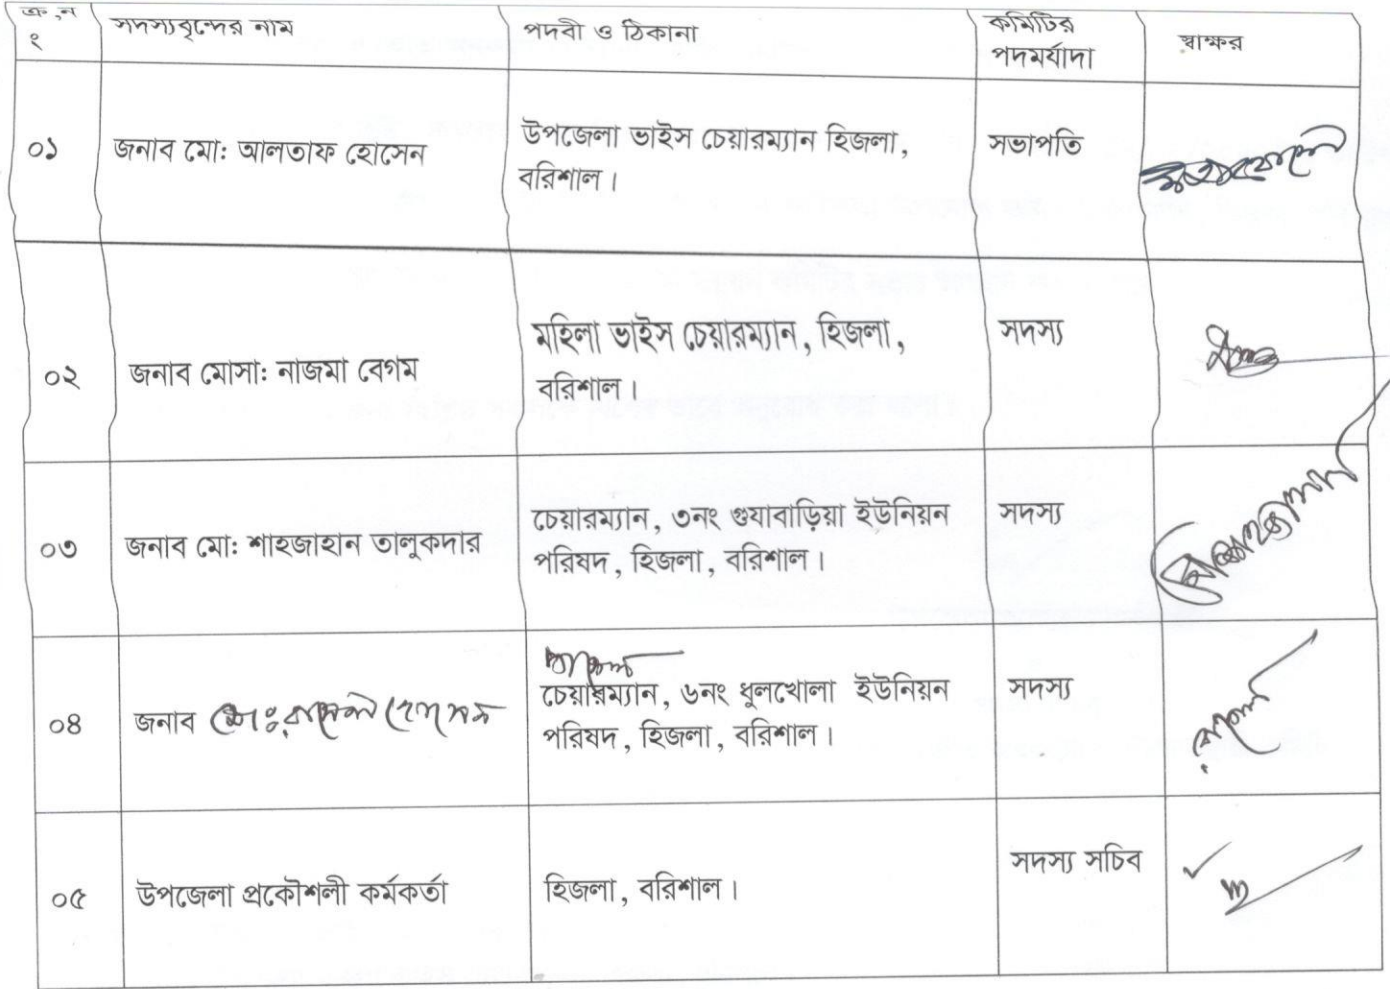 ক্র,ন
ং
সদস্যবৃন্দের নাম
পদবী ও ঠিকানা
কমিটির
পদমর্যাদা
স্বাক্ষর
০১
জনাব মো: আলতাফ হোসেন
উপজেলা ভাইস চেয়ারম্যান হিজলা,
বরিশাল।
সভাপতি
০২
জনাব মোসা: নাজমা বেগম
মহিলা ভাইস চেয়ারম্যান, হিজলা,
বরিশাল।
সদস্য
০৩
জনাব মো: শাহজাহান তালুকদার
চেয়ারম্যান, ৩নং গুযাবাড়িয়া ইউনিয়ন
পরিষদ, হিজলা, বরিশাল।
সদস্য
০৪
জনাব মোঃ
চেয়ারম্যান, ৬নং ধুলখোলা ইউনিয়ন
পরিষদ, হিজলা, বরিশাল।
সদস্য
০৫
উপজেলা প্রকৌশলী কর্মকর্তা
হিজলা, বরিশাল।
সদস্য সচিব